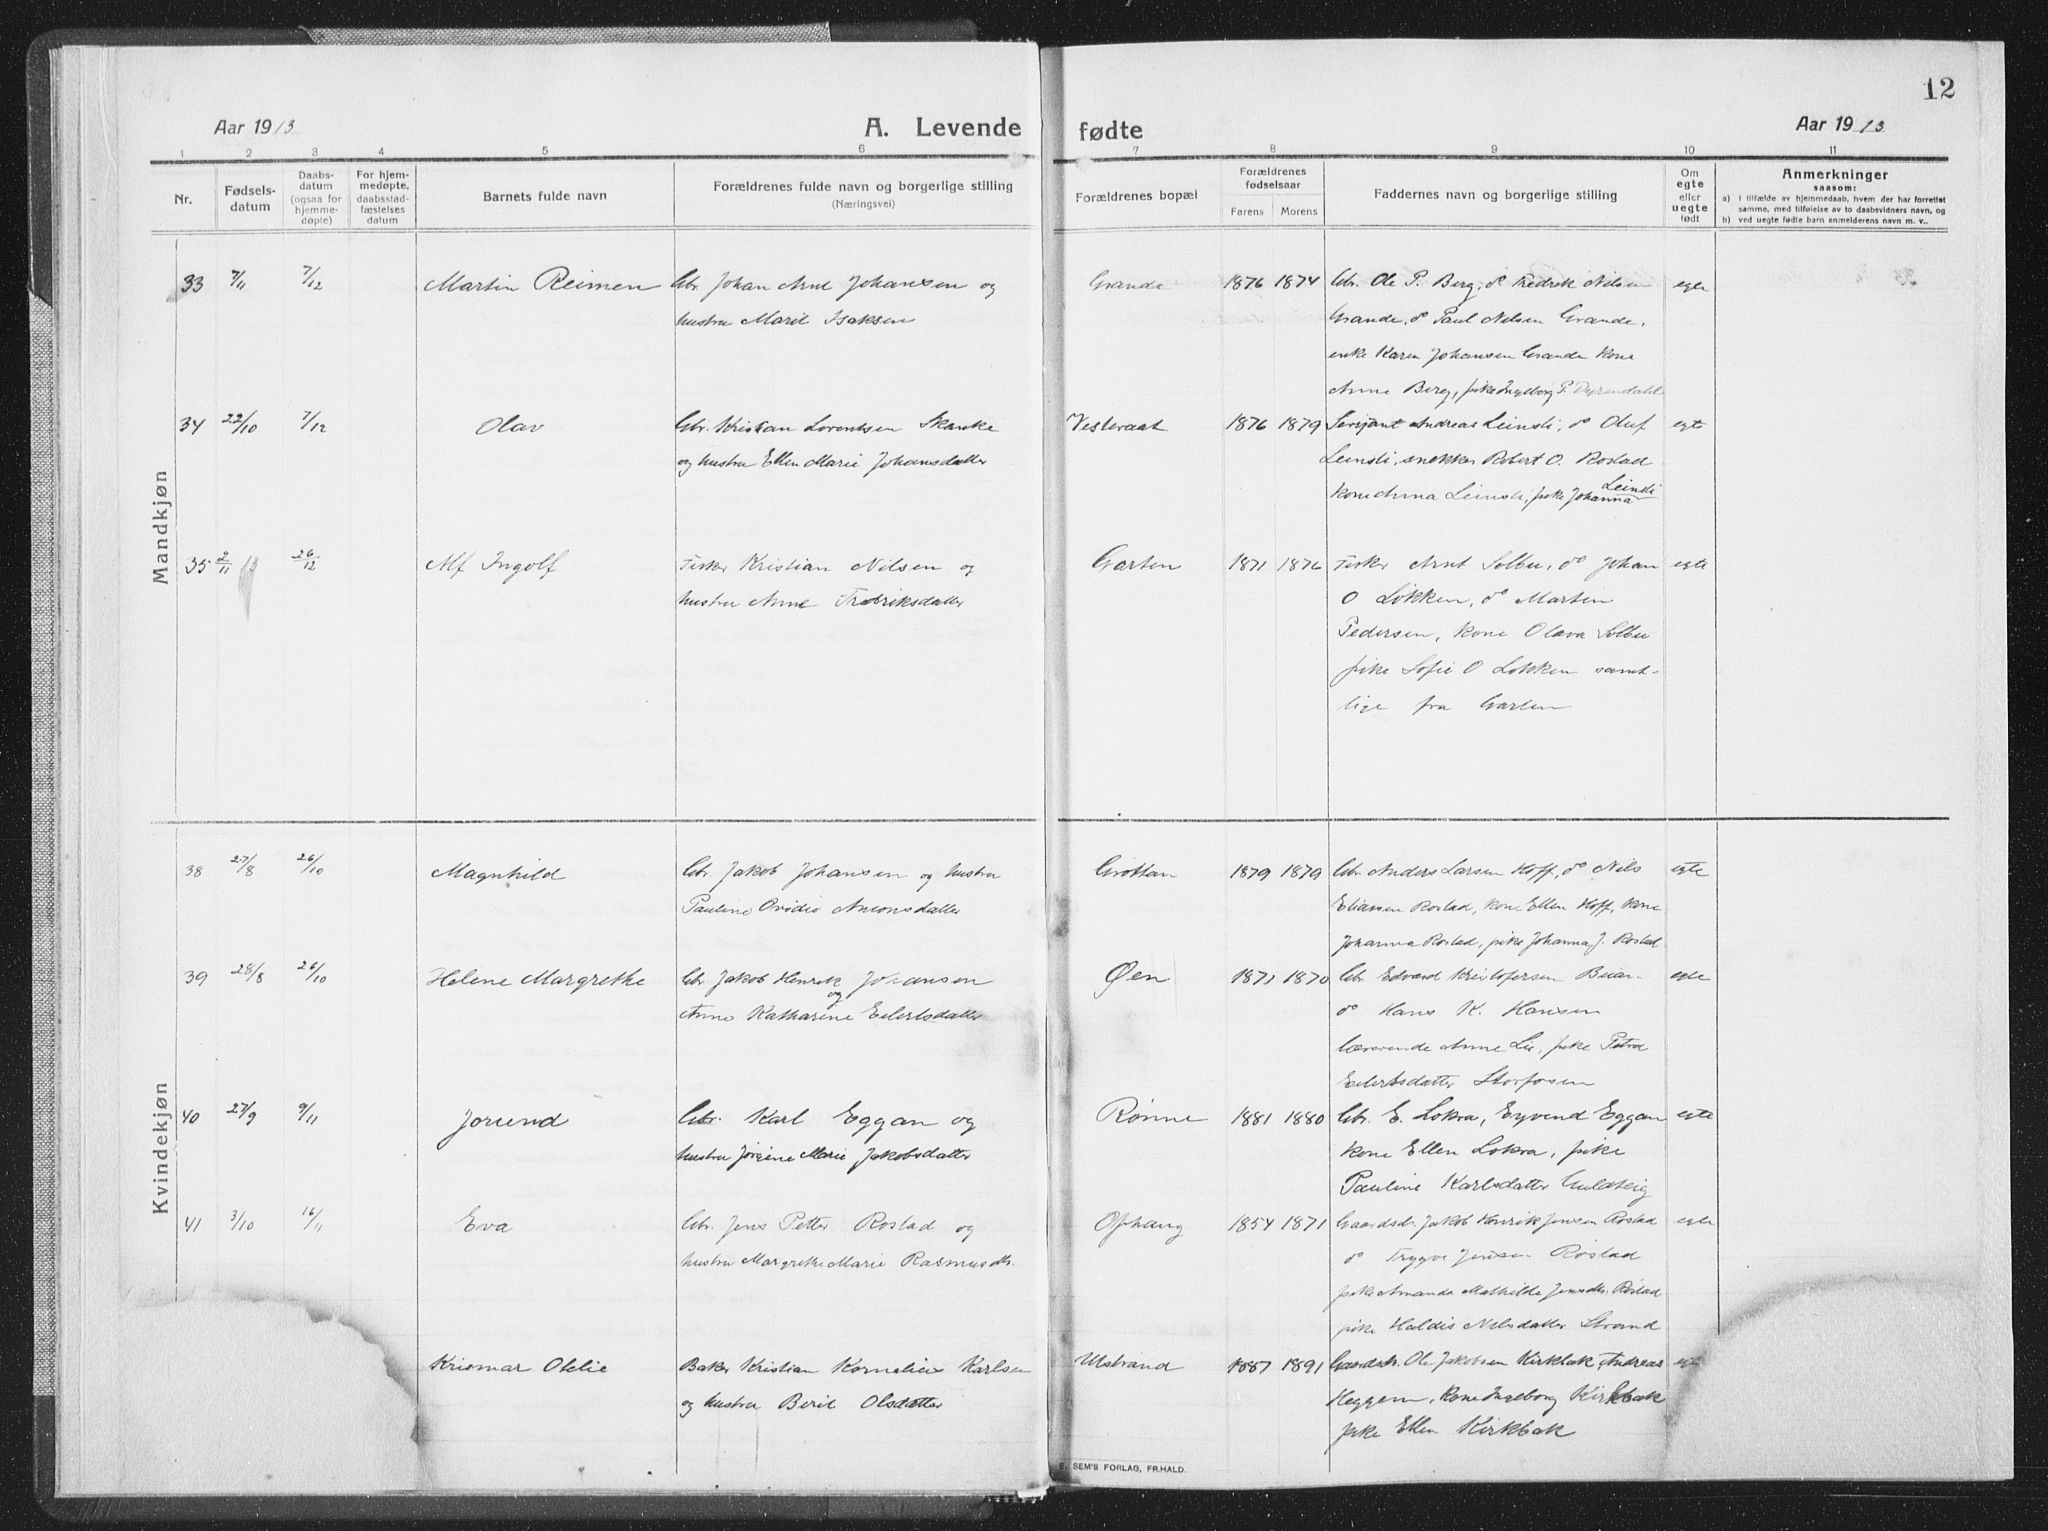 12
Aar 1913
A. Levende
fødte
Aar 1913
1 2 3 4 5 6 7 8 9 10 11
Nr.
Fødsels-
datum
Daabs-
datum
(ogsaa for
hjemme-
døpte)
For hjem-
medøpte,
daabsstad-
fæstelses
datum
Barnets fulde navn
Forældrenes fulde navn og borgerlige stilling
(Næringsvei)
Forældrenes bopæl
Forældrenes
fødselsaar
Farens Morens
Faddernes navn og borgerlige stilling
Om
egte
eller
uegte
født
Anmerkninger
saasom:
a) i tilfælde av hjemmedaab, hvem der har forrettet
samme, med tilføielse av to daabsvidners navn, og
b) ved uegte fødte barn anmelderens navn m. v..
Mandkjøn
33 7/11 7/12 Martin Reimen Gbr. Johan Arnt Johansen og
hustru Marit Isaksen
Grande 1876 1874 Gbr. Ole P. Berg, do Fredrik Nilsen egte
Grande, do Paul Nilsen Grande,
enke Karen Johansen Grande kone
Anne Berg, pike Ingeborg P. Dyrendahl
34 22/10 7/12 Olav Gbr. Kristian Lorentsen Skanke
og hustru Ellen Marie Johansdatter
Vesteraat 1876 1879 Sersjant Andreas Leinsli, do Oluf egte
Leinsli, snekker Robert O. Rostad
kone Anna Leinsli, pike Johanna Leinsli
35 2/11 13 26/12 Alf Ingolf Fisker Kristian Nilsen og
hustru Anne Fredriksdatter
Garten 1871 1876 Fisker Arnt Solbu, do Johan egte
O Løkken, do Martin
Pedersen, kone Olava Solbu
pike Sofie O Løkken samt-
lige fra Garten
Kvindekjøn
38 27/8 26/10 Magnhild Gbr. Jakob Johansen og hustru
Pauline Ovidie Antonsdatter
Grøttan 1879 1879 Gbr Anders Larsen Hoff, do Nils egte
Eliassen Rostad, kone Ellen Hoff, kone
Johanna Rostad, pike Johanna J. Rostad
39 28/8 26/10 Helene Margrethe Gbr Jakob Henrik Johansen
og
Anne Katharine Eilertsdatter
Øen 1871 1870 Gbr. Edvard Kristofersen Beian egte
do Hans K. Hansen
lærerinde Anne Lie, pike Petra
Eilertsdatter Storfosen
40 27/9 9/11 Jorund Gbr. Karl Eggan og
hustru Jørgine Marie Jakobsdatter
Rønne 1881 1880 Gbr. E. Lokra, Eyvind Eggan egte
kone Ellen Lokra, pike
Pauline Karlsdatter Guldteig
41 3/10 16/11 Eva Gbr. Jens Petter Rostad og
hustru Margrethe Marie Rasmusdtr.
Ophaug 1854 1871 Gaardsbr. Jakob Henrik Jensen Rostad egte
do Trygve Jensen Rostad
pike Amanda Mathilde Jensdtr. Rostad
pike Haldis Nilsdatter Strand
Krismar Otelie Baker Kristian Kornelius Karlsen
og hustru Berit Olsdatter
Ulstrand 1887 1891 Gaardsbr. Ole Jakobsen Kirkbak, Andreas egte
Heggem, kone Ingeborg Kirkbak
pike Ellen Kirkbak
E. SEM'S FORLAG, FR.HALD.